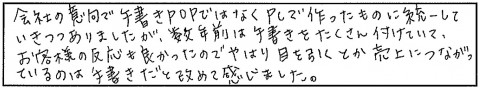 会社の意向で手書きPOPではなくPCで作ったものに統一して
いきつつありましたが、数年前は手書きをたくさん付けていて、
お客様の反応も良かったのでやはり目を引くとか売上につながっ
ているのは手書きだと改めて感じました。